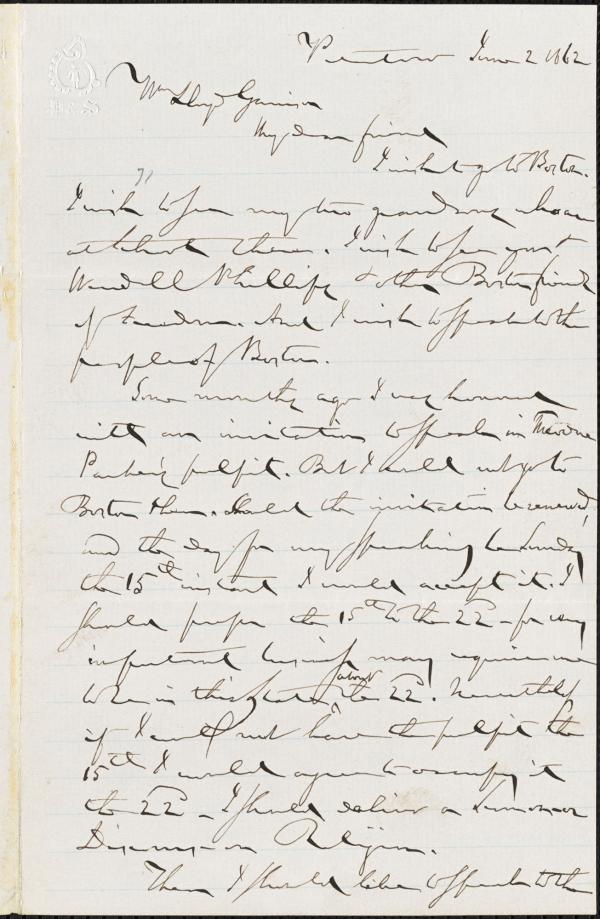 Peterboro June 2 1862
Wm Lloyd Garrison
My dear friend
I wish to go to Boston.
I wish to see my two grandsons who are
at school there. I wish to see you &
Wendell Phillips & other Boston friends
of freedom. And I wish to speak to the
people of Boston.
Some months ago I was honored
with an invitation to speak in Theodore
Parker's pulpit. But I could not go to
Boston then. Should the invitation be renewed,
and the day for my speaking be Sunday
the 15th instant I would accept it. I
should prefer the 15th to the 22d - for very
important business may require me
to be in this State about the 22d. Nevertheless
if I could not have the pulpit the
15th I would agree to occupy it
the 22d - I should deliver a Sermon or
Discourse on Religion.
Then I should like to speak to the